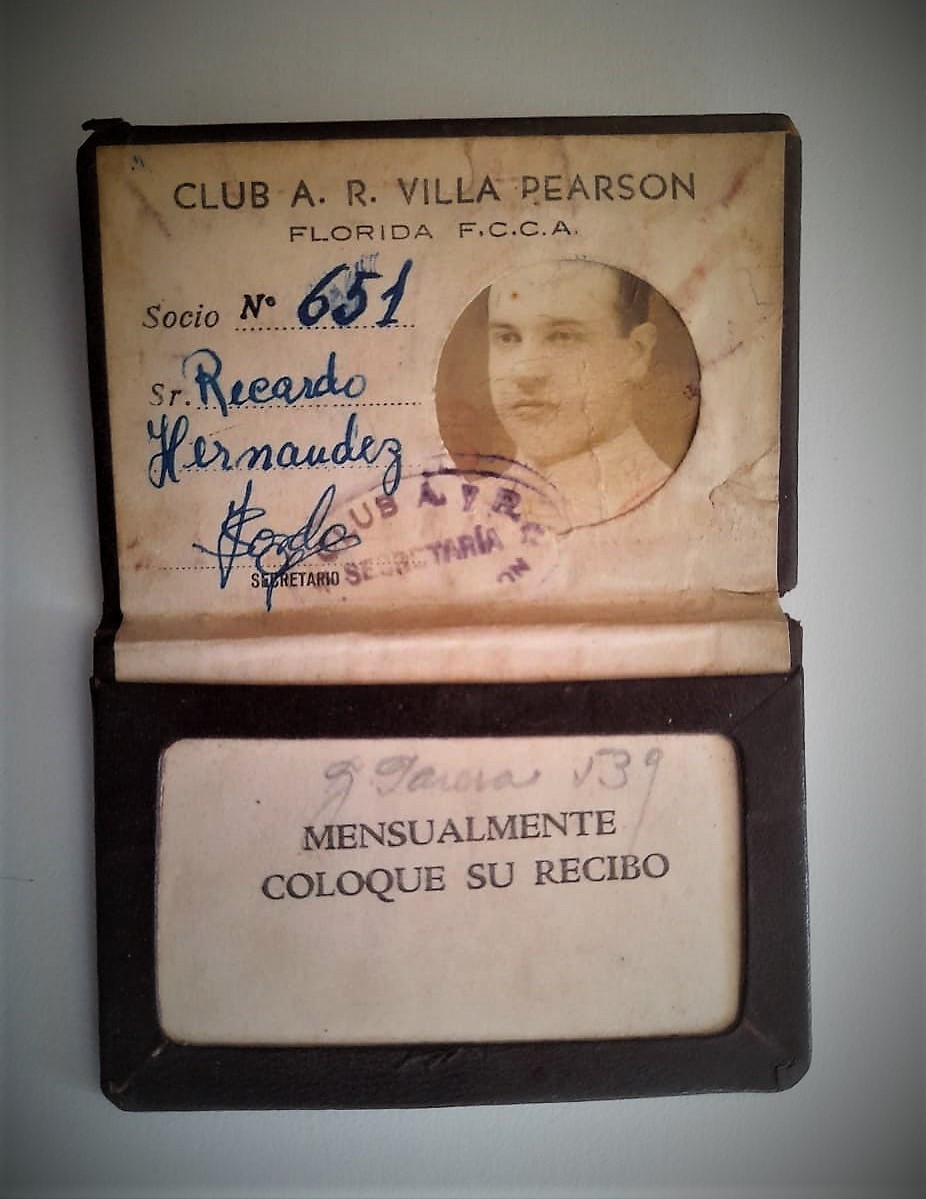 CLUB A. R. VILLA PEARSON
FLORIDA F.C.C.A.
Socio Nº 651
Sr. Recardo
Hernandez
CLUB A. Y R.
SECRETARÍA
SECRETARIO
139
MENSUALMENTE
COLOQUE SU RECIBO